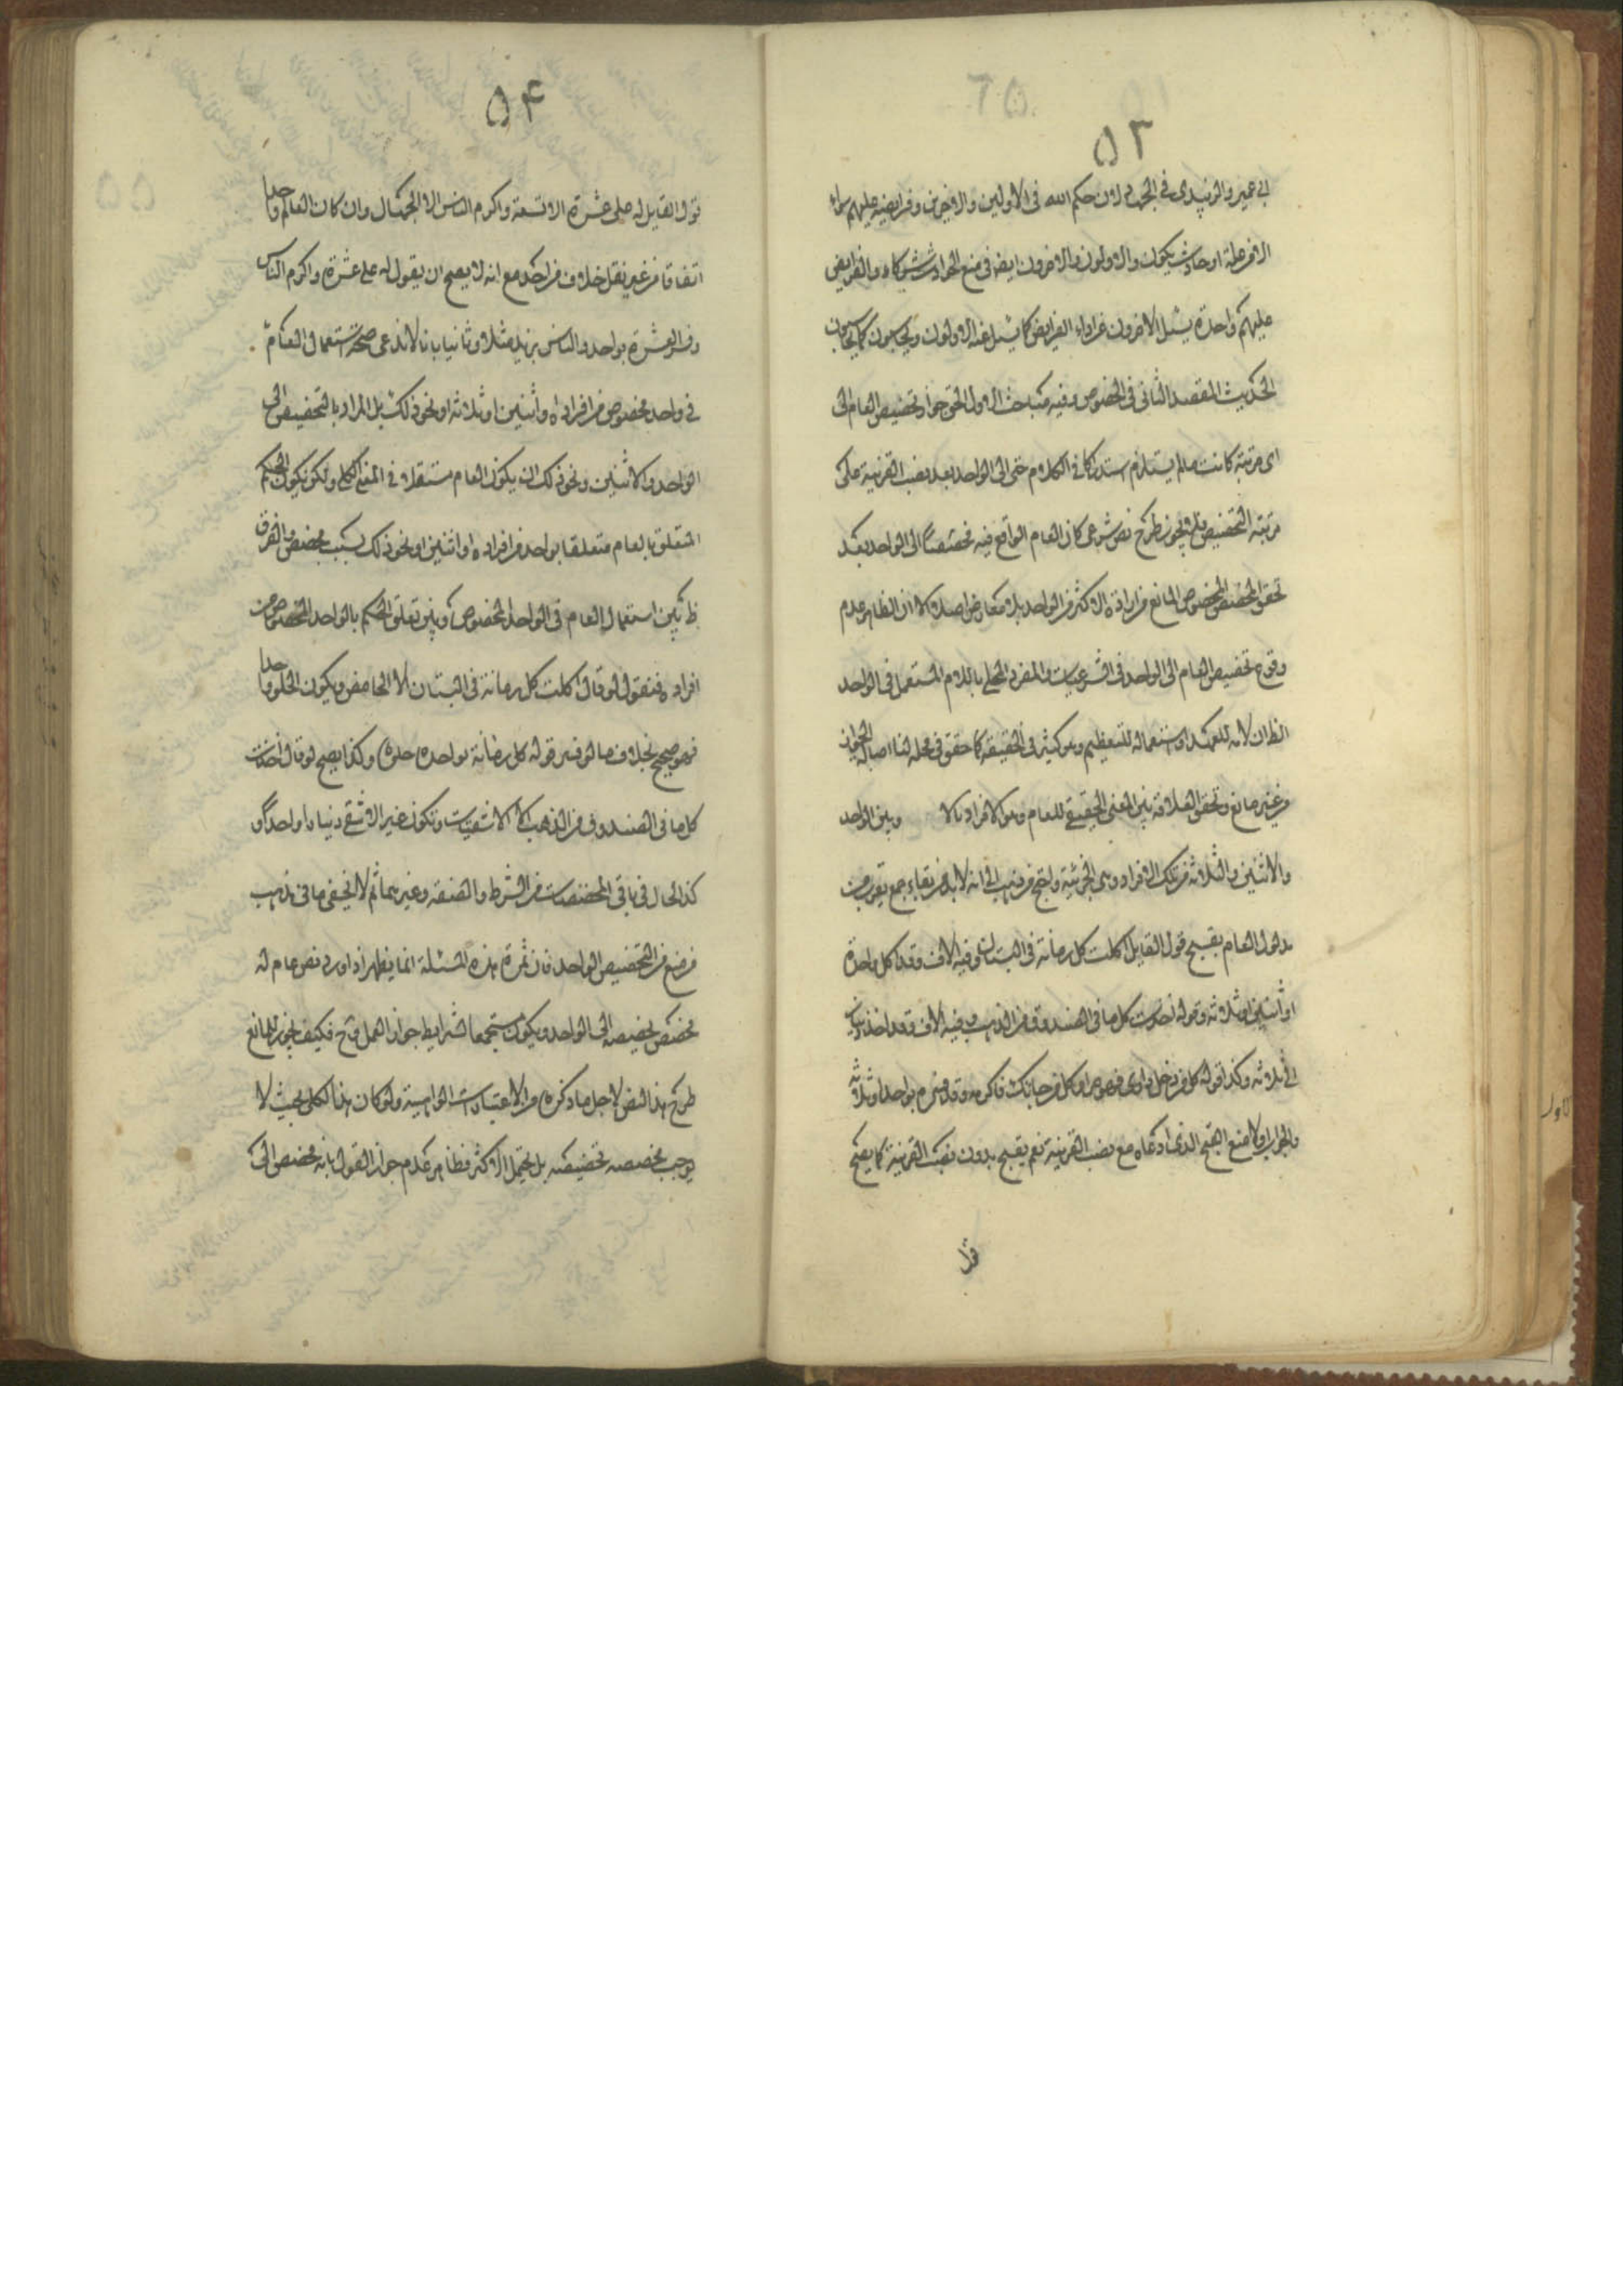 ٥٣
ابي عمير والزبيري في الجهاد لان حكم الله في الاولين والاخرين وفرايضه عليهم سواء
الا من علة او حادث يكون والاولون والاخرون ايضا في منع الحوادث شركاء والفرايض
عليهم واحدة يسئل الاخرون عن اداء الفرايض كما يسئل عنه الاولون ويحاسبون كما يحاسبون
الحديث المقصد الثاني في الخصوص وفيه مباحث الاول الحق جواز تخصيص العام الى
اي مرتبة كانت مالم يستلزم استدراكا في الكلام حتى الى الواحد بعد نصب القرينة على
مرتبة التخصيص فلا يجوز طرح نص شرعي كان العام الواقع فيه مخصصا الى الواحد بعد
تحقق المخصص المخصوص المانع من ارادة الاكثر من الواحد بلا معارض اصلا الا ان الظاهر عدم
وقوع تخصيص العام الى الواحد في الشرعيات والمفرد المحلى باللام المستعمل في الواحد
الظ ان لامه للعهد او استعماله للتعظيم وهو كثير في الحقيقة كما حقق في محله لنا اصالة الجواز
من غير مانع وتحقق العلاقة بين المعنى الحقيقي للعام وهو الافراد بالا وبين الواحد
والاثنين والثلاثة من تلك الافراد وهي الجزئية واحتج من ذهب الى انه لابد من بقاء جمع يقرب من
مدلول العام بقبح قول القايل اكلت كل رمانة في البستان وفيه الاف وقد اكل واحدة
او اثنين او ثلاثة وقوله اخذت كل ما في الصندوق من الذهب وفيه الاف وقد اخذ دينارا
الى ثلاثة وكذا قوله كل من دخل داري فهو حر او كل من جاءك فاكرمه وقد فسره بواحد او ثلاثة
والجواب اولا منع القبح الذي ادعاه مع نصب القرينة نعم يقبح بدون نصب القرينة كما يصح
قول
٥٤
قول القايل له علي عشرة الا تسعة واكرم الناس الا الجهال وان كان العالم واحدا
اتفاقا من غير نقل خلاف من احد مع انه لا يصح ان يقول له علي عشرة واكرم الناس
وفسر العشرة بواحد والناس بزيد مثلا وثانيا بانا لا ندعي صحة استعمال العام
في واحد مخصوص من افراده او اثنين او ثلاثة او نحو ذلك بل المراد بالتخصيص الى
الواحد والاثنين ونحو ذلك ان يكون العام مستعملا في المعنى الكلي ولكن يكون الحكم
المتعلق بالعام متعلقا بواحد من افراده او اثنين او نحو ذلك بسبب مخصص والفرق
ظ بين استعمال العام في الواحد المخصوص وبين تعلق الحكم بالواحد المخصوص من
افراده فنقول لو قال اكلت كل رمانة في البستان الا الحامض ويكون الحلو واحدا
فهو صحيح بخلاف ما لو فسر قوله كل رمانة بواحدة حلوة وكذا يصح لو قال اخذت
كل ما في الصندوق من الذهب الا الاشقيات وتكون غير الاشقي دينارا واحدا و
كذا الحال في باقي المخصصات من الشرط والصفة وغيرهما ثم لا يخفى ما في مذهب
من منع من التخصيص الى الواحد فان ثمرة هذه المسئلة انما يظهر اذا ورد نص عام له
مخصص يخصصه الى الواحد ويكون مستجمعا لشرايط جواز العمل وح فكيف يجوز للمانع
طرح هذا النص لاجل ما ذكره من الاعتبارات الواهية ولو كان هذا الكلي بحيث لا
يوجب مخصصه تخصيصه بل يحتمل الاكثر فظاهر عدم جواز القول بانه مخصص الى